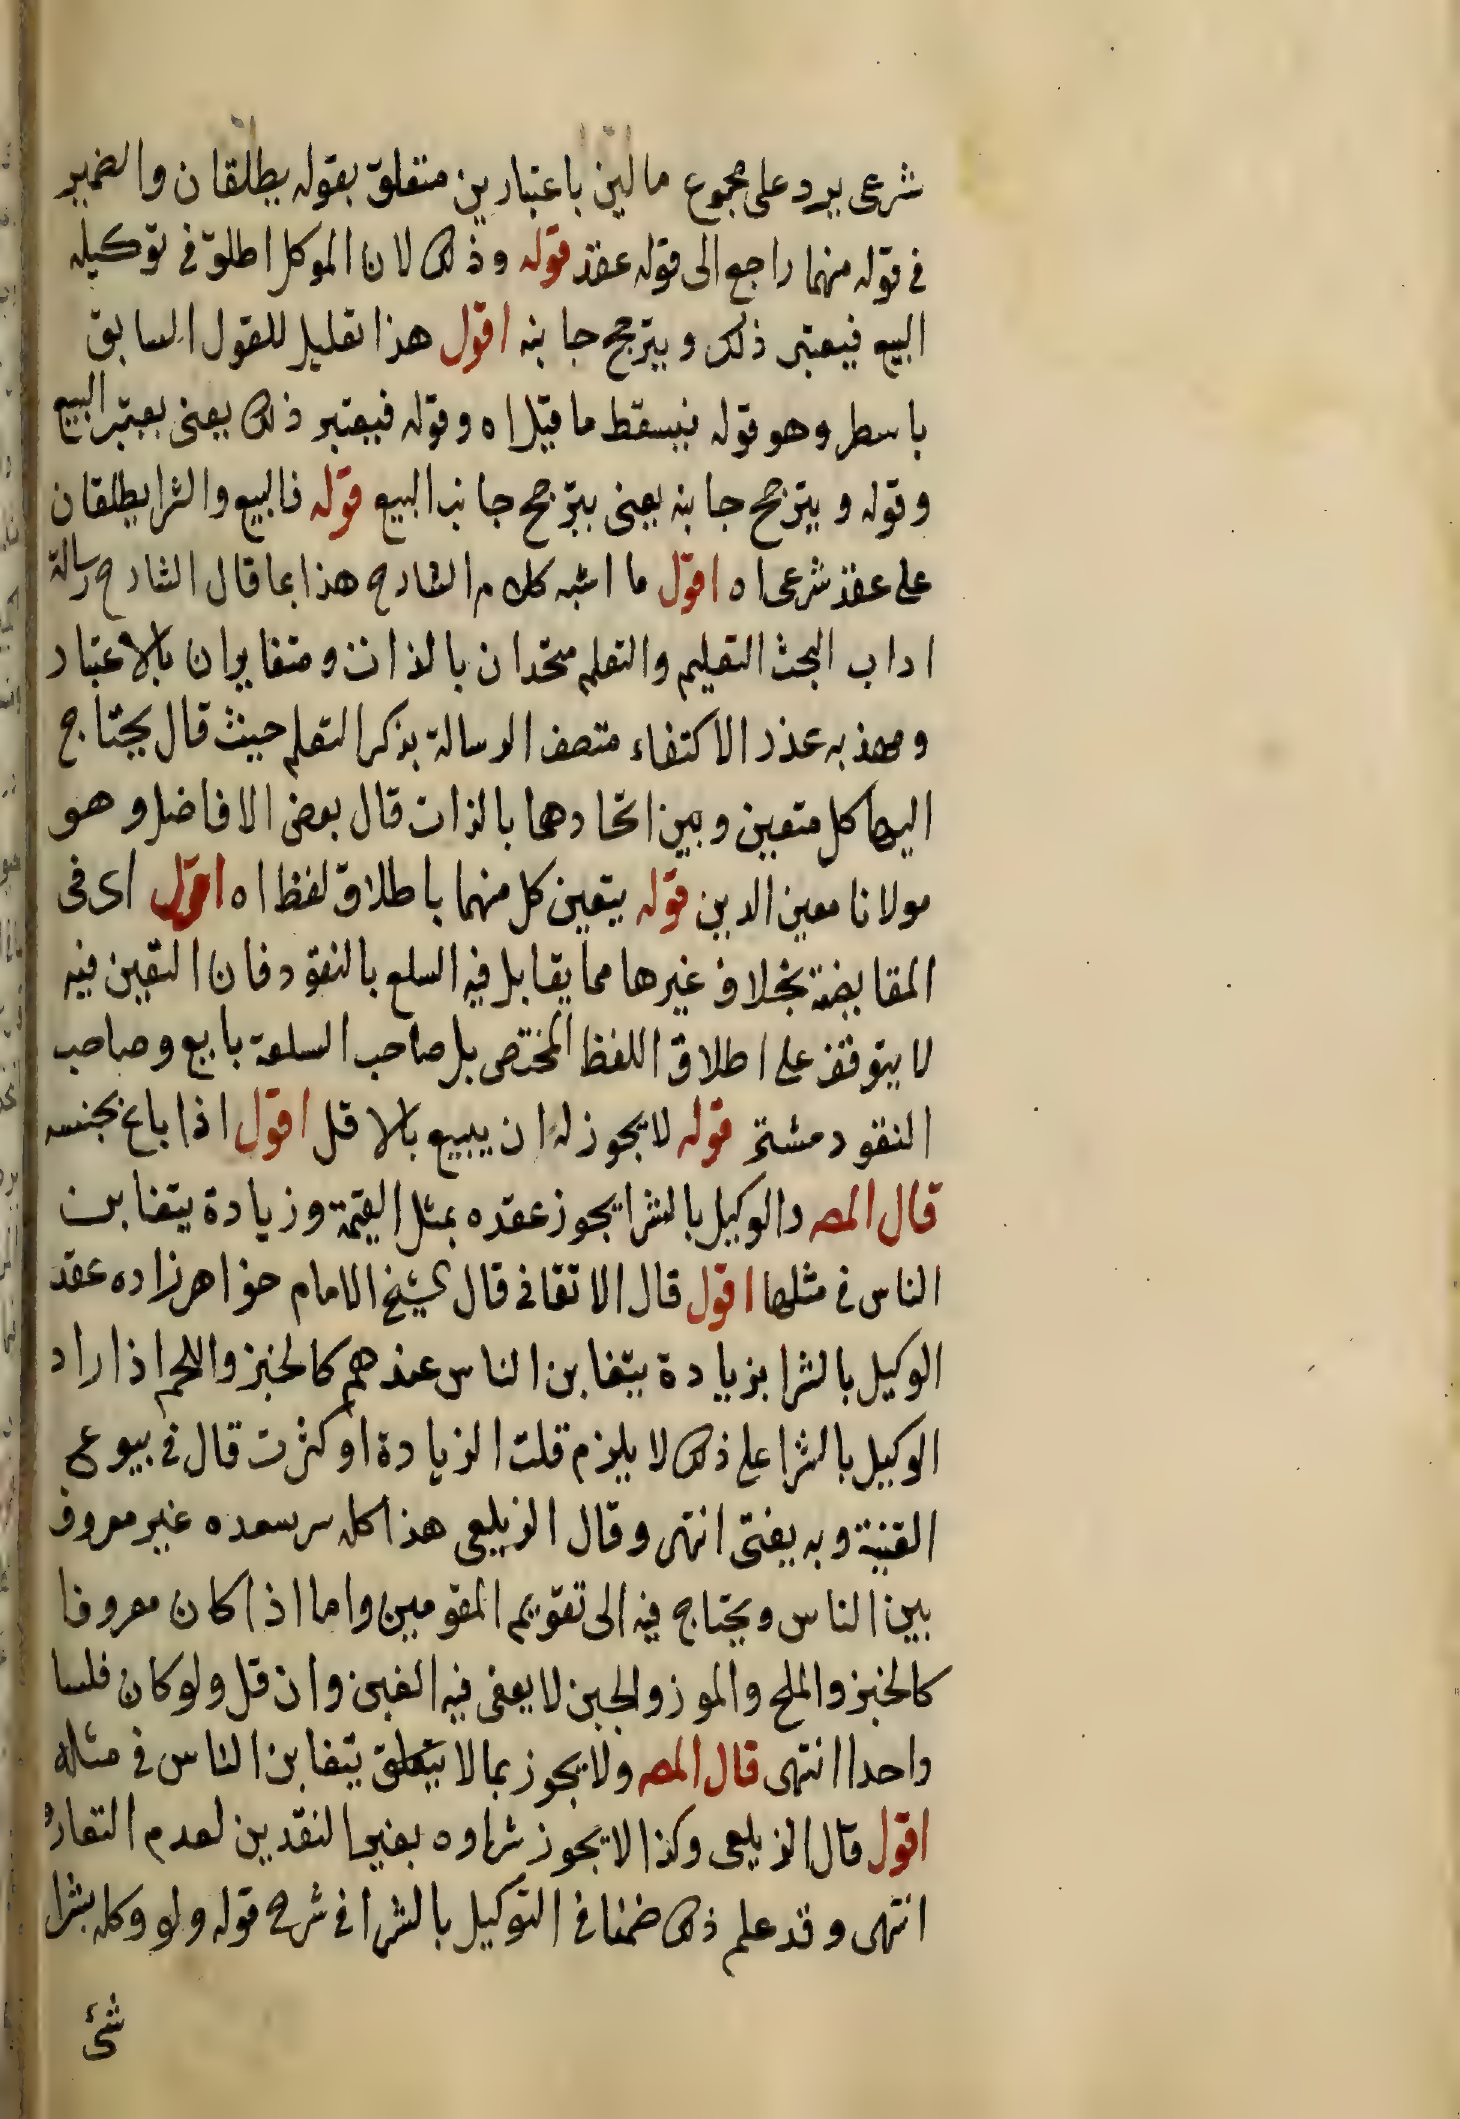 شرعى يرد على مجموع مالين باعتبارين متعلق بقوله يطلقان والضمير
فى قوله منهما راجع الى قوله عقد قوله وذلك لان الموكل اطلق فى توكيله
البيع فيعتبر ذلك ويترجح جانبه اقول هذا تعليل للقول السابق
باسطر وهو قوله فيسقط ما قيل اه وقوله فيعتبر ذلك يعنى يعتبر البيع
وقوله ويترجح جانبه يعنى يترجح جانب البيع قوله فالبيع والشرا يطلقان
على عقد شرعى اه اقول ما اشبه كلام الشارح هذا بما قال الشارح رسالة
اداب البحث التعليم والتعلم متحدان بالذات ومتغايران بالاعتبار
به عذر الاكتفاء الرسالة بذكر التعلم حيث قال يحتاج
اليها كل متعين وبين اتحادهما بالذات قال بعض الافاضل وهو
مولانا معين الدين قوله يتعين كل منهما باطلاق لفظ اه اقول اى فى
المقايضة بخلاف غيرها مما يقابل فيه السلع بالنقود فان التعين فيه
لا يتوقف على اطلاق اللفظ المختص بل صاحب السلعة بايع وصاحب
النقود مشتر قوله لا يجوز له ان يبيع بالاقل اقول اذا باع بجنسه
قال المص والوكيل بالشرا يجوز عقده بمثل القيمة وزيادة يتغابن
الناس فى مثلها اقول قال الاتقانى قال شيخ الامام خواهرزاده عقد
الوكيل بالشرا بزيادة يتغابن الناس عندهم كالخبز واللحم اذا زاد
الوكيل بالشرا على ذلك لا يلزم قلت الزيادة او كثرت قال فى بيوع
القنية وبه يفتى انتهى وقال الزيلعى هذا كله غير معروف
بين الناس ويحتاج فيه الى تقويم المقومين واما اذا كان معروفا
كالخبز والملح والموز والجبن لا يعفى فيه الغبن وان قل ولو كان فلسا
واحدا انتهى قال المص ولا يجوز بما لا يتعلق يتغابن الناس فى مثله
اقول قال الزيلعى وكذا لا يجوز شراوه بغير النقدين لعدم التعارف
انتهى وقد علم ذلك ضمنا فى التوكيل بالشرا فى شرح قوله ولو وكله بشرا
شئ